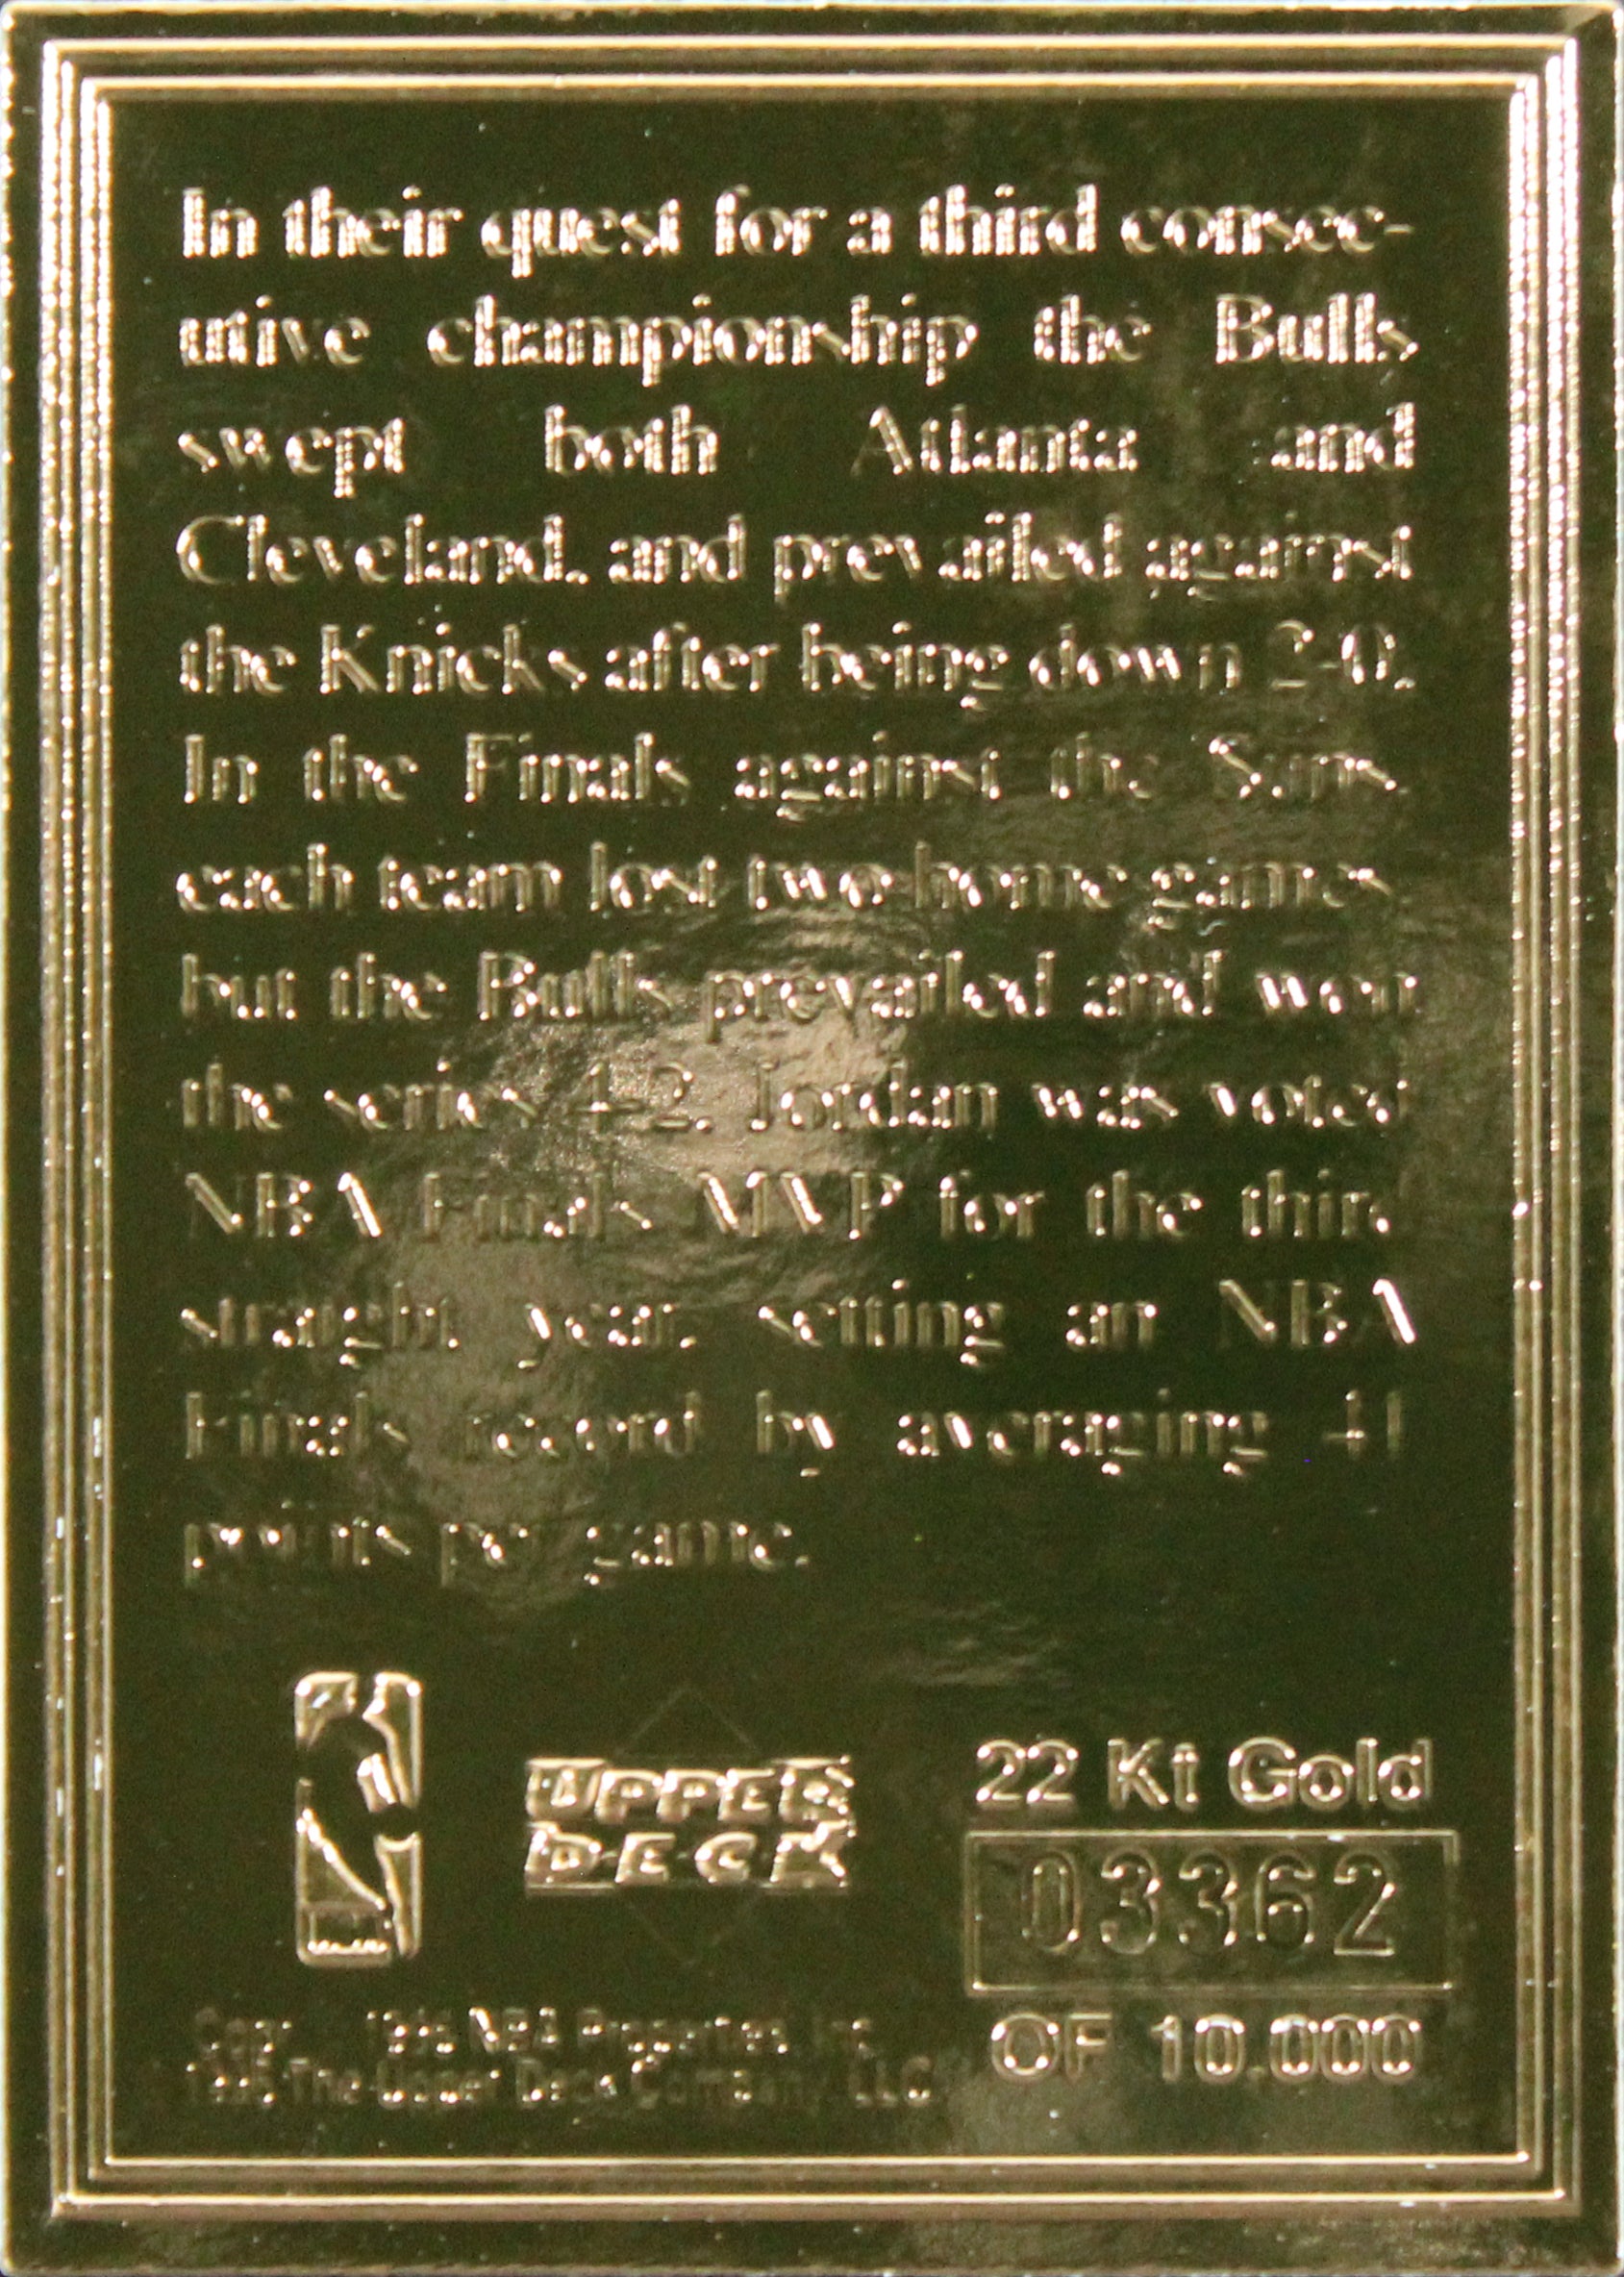 In their quest for a third consec-
utive championship the Bulls
swept both Atlanta and
Cleveland, and prevailed against
the Knicks after being down 2-0.
In the Finals against the Suns,
each team lost two home games,
but the Bulls prevailed and won
the series 4-2. Jordan was voted
NBA Finals MVP for the third
straight year, setting an NBA
Finals record by averaging 41
points per game.
UPPER
DECK
22 Kt Gold
03362
OF 10,000
NBA Properties, Inc.
The Upper Deck Company, LLC